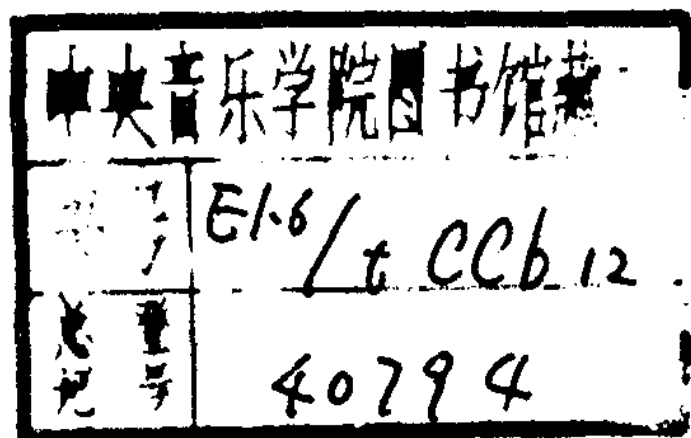 中央音乐学院图书馆藏
书号 E1.6/t CCb 12
总登记号 40794